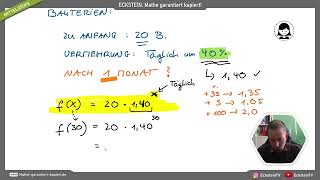 MITTELSTUFE
ECKSTEIN. Mathe garantiert kapiert!
BAKTERIEN:
ZU ANFANG : 20 B.
VERMEHRUNG: Täglich um 40%
NACH 1 MONAT ?
↳ 1,40
+35 → 1,35
+5 → 1,05
+100 → 2,0
f(x) = 20 · 1,40^x
Täglich
f(30) = 20 · 1,40^30
=
Mathe-garantiert-kapiert.de
EcksteinTV
EcksteinTV